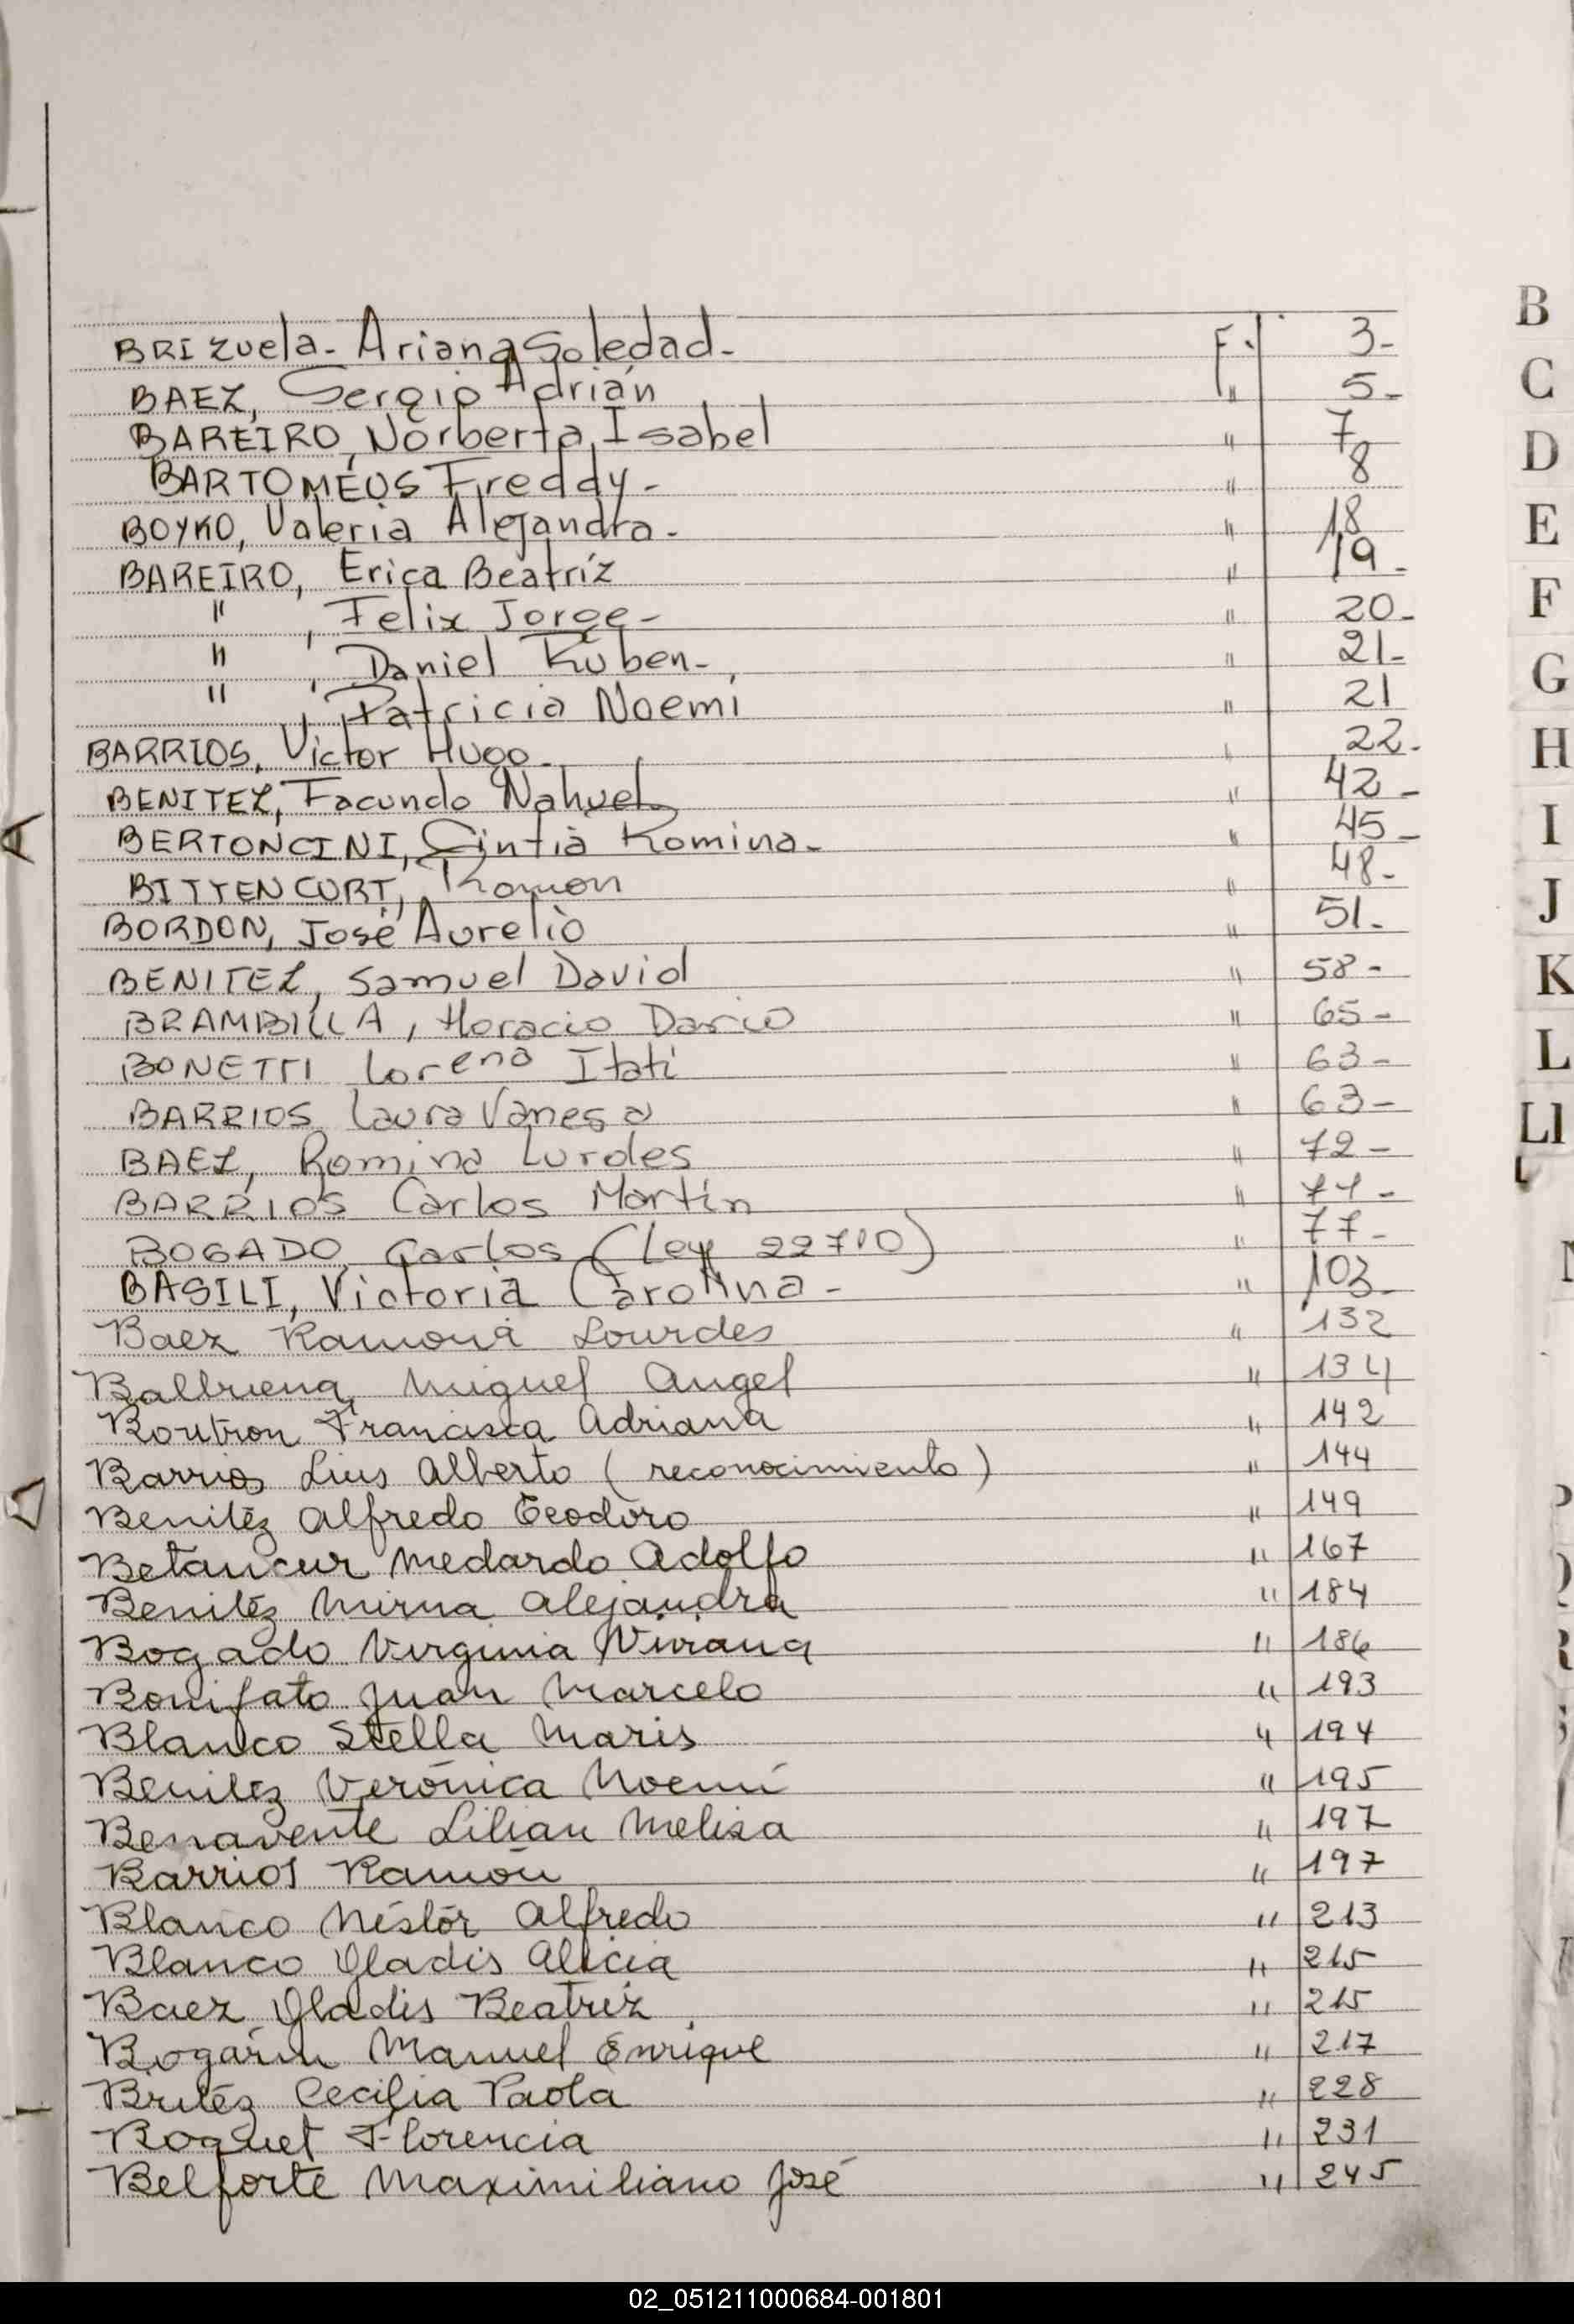 BRIZUELA - Ariana Soledad - F. 3-
BAEZ, Sergio Adrián " 5-
BAREIRO, Norberta Isabel " 7
BARTOMÉUS Freddy - " 8
BOYKO, Valeria Alejandra - " 18
BAREIRO, Erica Beatríz " 19-
" , Felix Jorge - " 20-
" , Daniel Ruben - " 21-
" , Patricia Noemí " 21
BARRIOS, Victor Hugo - " 22-
BENITEZ, Facundo Nahuel " 42-
BERTONCINI, Cintia Romina - " 45-
BITTENCURT, Ramon " 48-
BORDON, José Aurelio " 51-
BENITEZ, Samuel David " 58-
BRAMBILLA, Horacio Dario " 65-
BONETTI Lorena Itatí " 63-
BARRIOS Laura Vanesa " 63-
BAEZ, Romina Lurdes " 72-
BARRIOS Carlos Martín "
BOGADO Carlos (Ley 22710) " 77-
BASILI, Victoria Carolina - " 103-
Baez Ramona Lourdes " 132
Balbuena Miguel Angel " 134
Boutron Francisca Adriana " 142
Barrios Luis Alberto (reconocimiento) " 144
Benitéz Alfredo Teodoro " 149
Betancur Medardo Adolfo " 167
Benitéz Mirna Alejandra " 184
Bogado Virginia Viviana " 186
Bonifato Juan Marcelo " 193
Blanco Stella Maris " 194
Benitéz Verónica Noemí " 195
Benavente Lilian Melisa " 197
Barrios Ramón " 197
Blanco Néstór Alfredo " 213
Blanco Gladis Alicia " 215
Baez Gladis Beatriz " 215
Bogarín Manuel Enrique " 217
Britéz Cecilia Paola " 228
Boquet Florencia " 231
Belforte Maximiliano José " 245
B
C
D
E
F
G
H
I
J
K
L
Ll
02_051211000684-001801